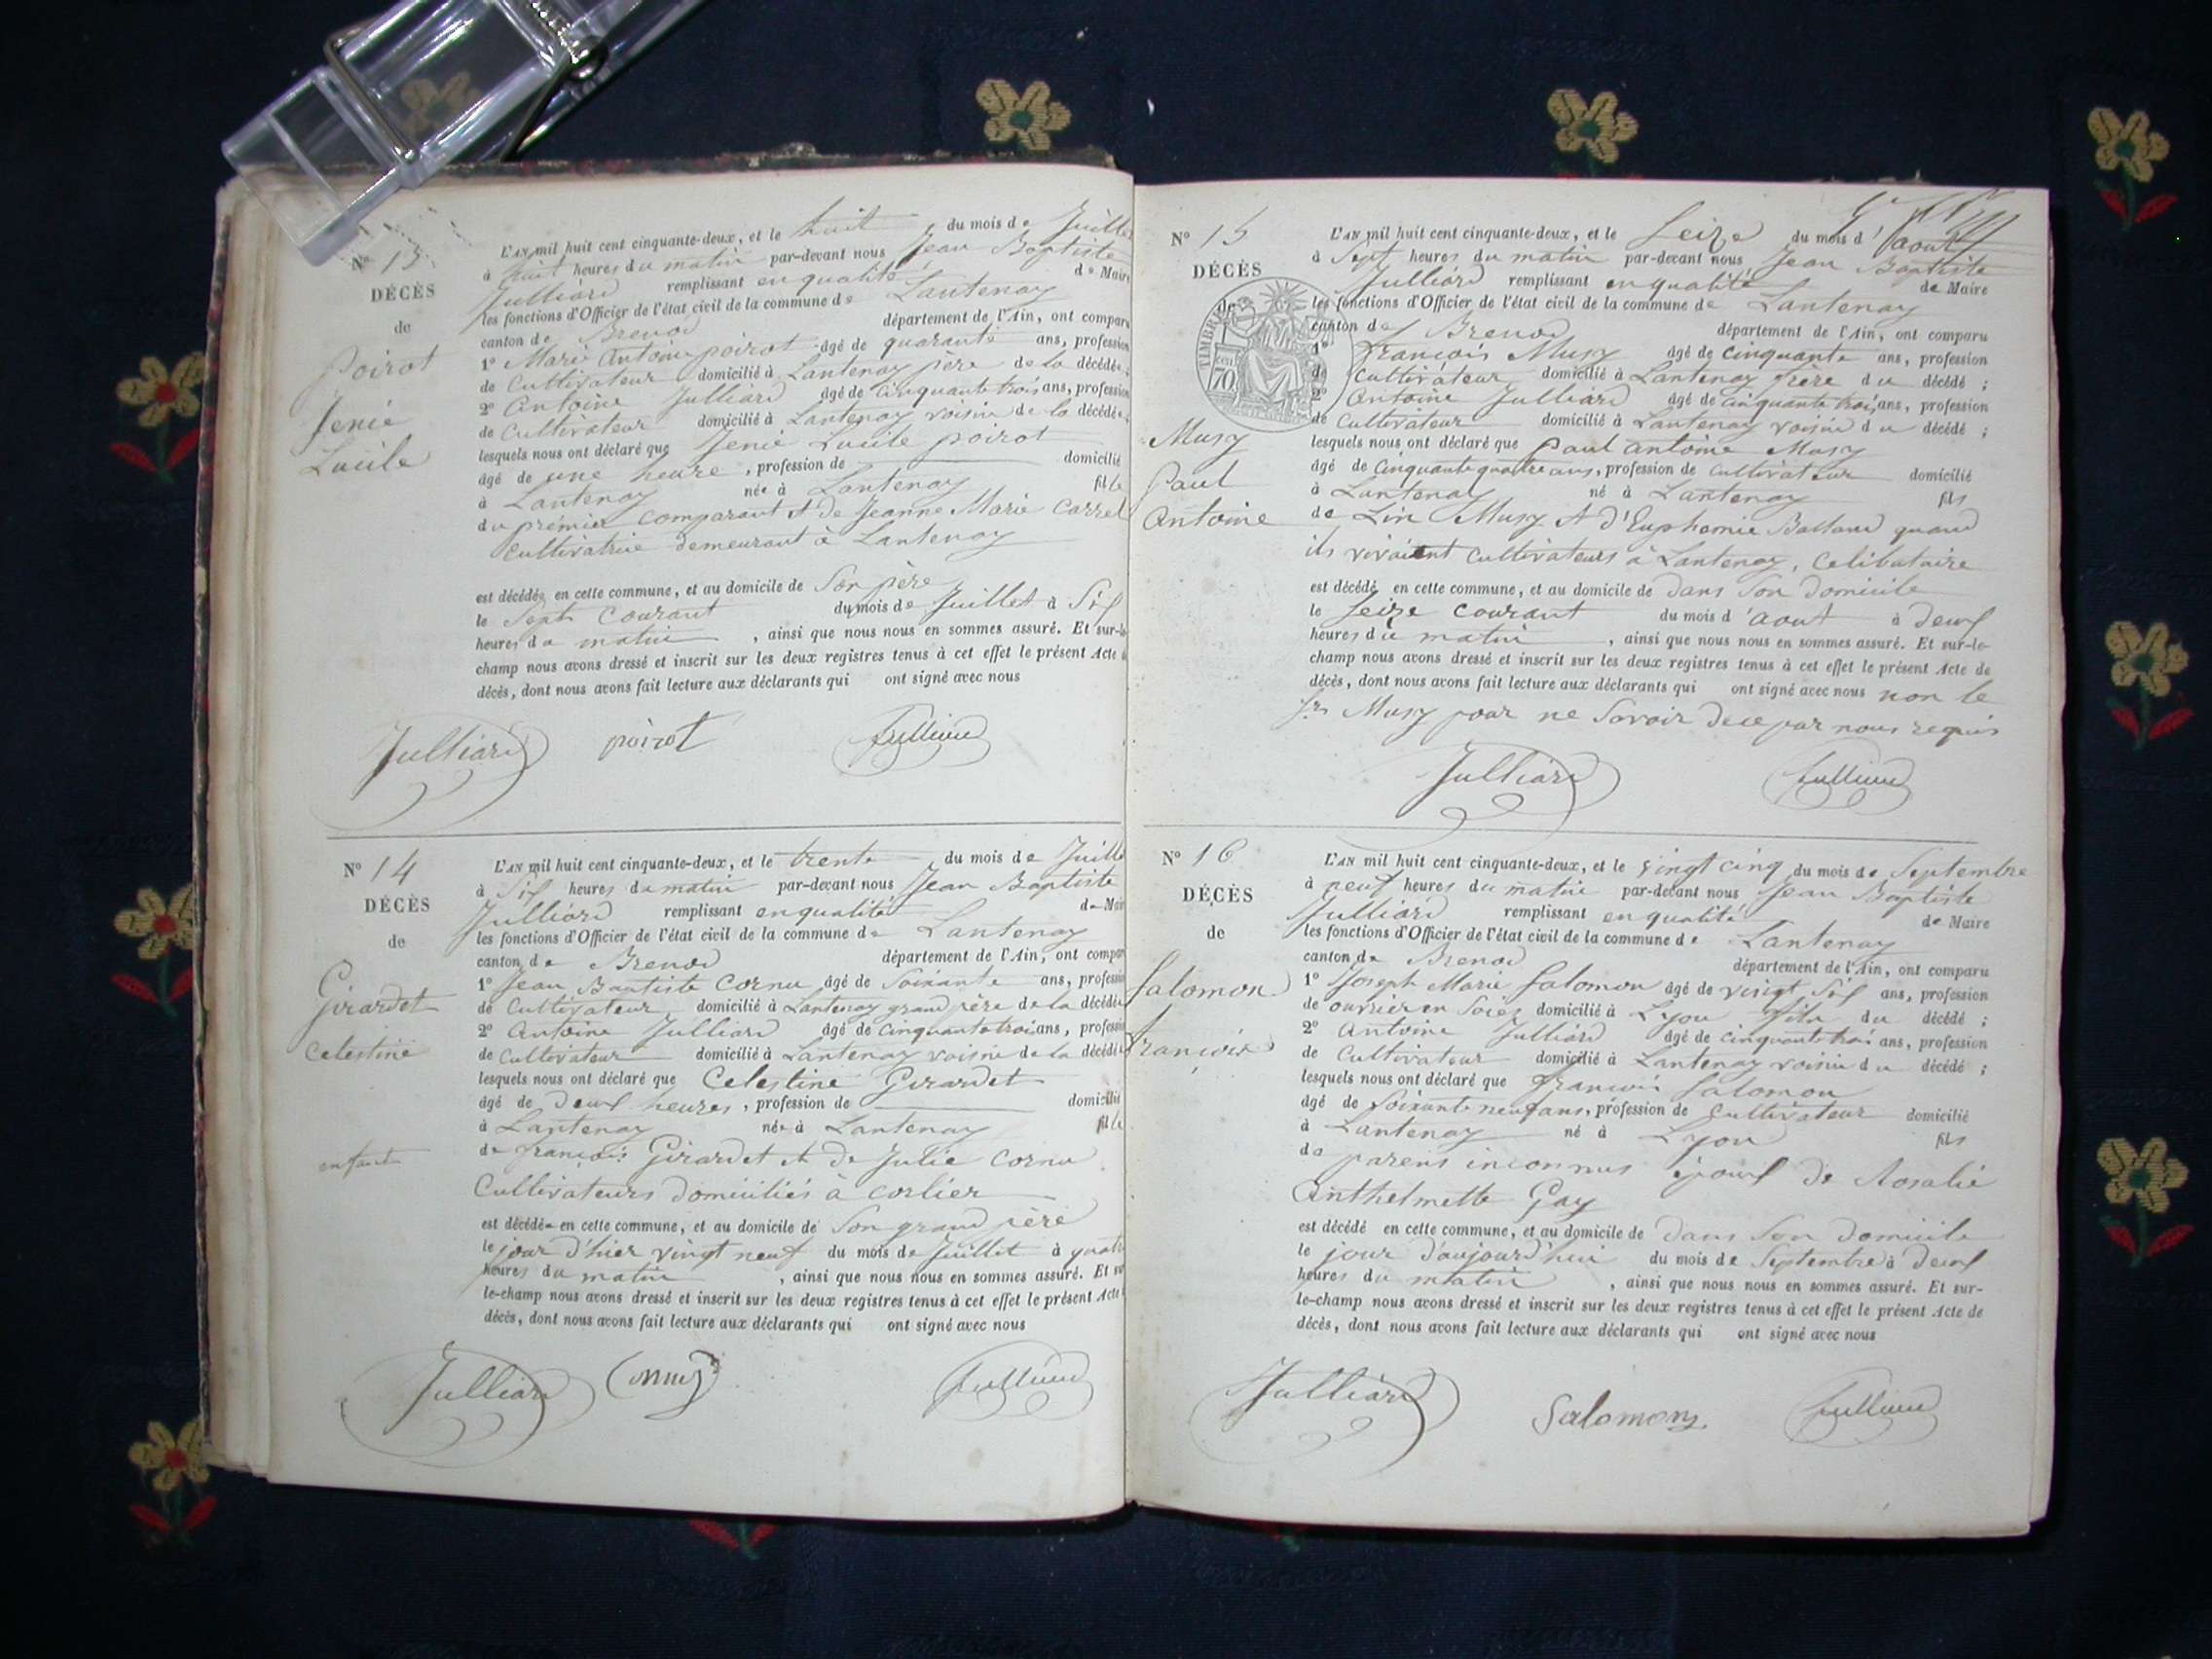 N° 13
DÉCÈS
de
Poirot
Jenie
Lucile
L'AN mil huit cent cinquante-deux, et le huit du mois de Juillet
à huit heures du matin par-devant nous Jean Baptiste
Julliard remplissant en qualité de Maire
les fonctions d'Officier de l'état civil de la commune de Lantenay
canton de Brenod département de l'Ain, ont comparu
1° Marie Antoine poirot âgé de quarante ans, profession
de Cultivateur domicilié à Lantenay père de la décédée;
2° Antoine Julliard âgé de cinquante trois ans, profession
de Cultivateur domicilié à Lantenay voisin de la décédée;
lesquels nous ont déclaré que Jenie Lucile poirot
âgé de une heure, profession de domicilié
à Lantenay née à Lantenay fille
du premier comparant et de Jeanne Marie Carrel
Cultivatrice demeurant à Lantenay
est décédée en cette commune, et au domicile de Son père
le Sept Courant du mois de Juillet à Six
heures du matin, ainsi que nous nous en sommes assuré. Et sur-le-
champ nous avons dressé et inscrit sur les deux registres tenus à cet effet le présent Acte de
décès, dont nous avons fait lecture aux déclarants qui ont signé avec nous
Julliard poirot Julliard
N° 14
DÉCÈS
de
Girardet
Celestine
enfant
L'AN mil huit cent cinquante-deux, et le trente du mois de Juillet
à Six heures du matin par-devant nous Jean Baptiste
Julliard remplissant en qualité de Maire
les fonctions d'Officier de l'état civil de la commune de Lantenay
canton de Brenod département de l'Ain, ont comparu
1° Jean Baptiste Cornu âgé de Soixante ans, profession
de Cultivateur domicilié à Lantenay grand père de la décédée
2° Antoine Julliard âgé de cinquante trois ans, profession
de Cultivateur domicilié à Lantenay voisin de la décédée
lesquels nous ont déclaré que Celestine Girardet
âgé de Deux heures, profession de domicilié
à Lantenay née à Lantenay fille
de françois Girardet et de Julie Cornu
Cultivateurs domiciliés à Corlier
est décédée en cette commune, et au domicile de Son grand père
le jour d'hier vingt neuf du mois de Juillet à quatre
heures du matin, ainsi que nous nous en sommes assuré. Et sur
le-champ nous avons dressé et inscrit sur les deux registres tenus à cet effet le présent Acte
décès, dont nous avons fait lecture aux déclarants qui ont signé avec nous
Julliard Julliard
N° 15
DÉCÈS
de
TIMBRE
70
Musy
Paul
Antoine
L'AN mil huit cent cinquante-deux, et le Seize du mois d'aout
à Sept heures du matin par-devant nous Jean Baptiste
Julliard remplissant en qualité de Maire
les fonctions d'Officier de l'état civil de la commune de Lantenay
canton de Brenod département de l'Ain, ont comparu
1° François Musy âgé de cinquante ans, profession
de Cultivateur domicilié à Lantenay frère du décédé;
2° Antoine Julliard âgé de cinquante trois ans, profession
de Cultivateur domicilié à Lantenay voisin du décédé;
lesquels nous ont déclaré que Paul antoine Musy
âgé de Cinquante quatre ans, profession de Cultivateur domicilié
à Lantenay né à Lantenay fils
de Lin Musy et d'Euphemie Balland quand
ils vivaient Cultivateurs à Lantenay, Celibataire
est décédé en cette commune, et au domicile de Dans Son Domicile
le Seize Courant du mois d'aout à Deux
heures du matin, ainsi que nous nous en sommes assuré. Et sur-le-
champ nous avons dressé et inscrit sur les deux registres tenus à cet effet le présent Acte de
décès, dont nous avons fait lecture aux déclarants qui ont signé avec nous non le
Sr Musy pour ne Savoir de ce par nous requis
Julliard Julliard
N° 16
DÉCÈS
de
Salomon
François
L'AN mil huit cent cinquante-deux, et le vingt cinq du mois de Septembre
à neuf heures du matin par-devant nous Jean Baptiste
Julliard remplissant en qualité de Maire
les fonctions d'Officier de l'état civil de la commune de Lantenay
canton de Brenod département de l'Ain, ont comparu
1° Joseph Marie Salomon âgé de vingt Six ans, profession
de ouvrier en Soies domicilié à Lyon fils du décédé;
2° Antoine Julliard âgé de cinquante trois ans, profession
de Cultivateur domicilié à Lantenay voisin du décédé;
lesquels nous ont déclaré que françois Salomon
âgé de Soixante neuf ans, profession de Cultivateur domicilié
à Lantenay né à Lyon fils
de parens inconnus époux de Rosalie
Anthelmette Gay
est décédé en cette commune, et au domicile de Dans Son Domicile
le jour d'aujourd'hui du mois de Septembre à Deux
heures du matin, ainsi que nous nous en sommes assuré. Et sur-
le-champ nous avons dressé et inscrit sur les deux registres tenus à cet effet le présent Acte de
décès, dont nous avons fait lecture aux déclarants qui ont signé avec nous
Julliard Salomon Julliard